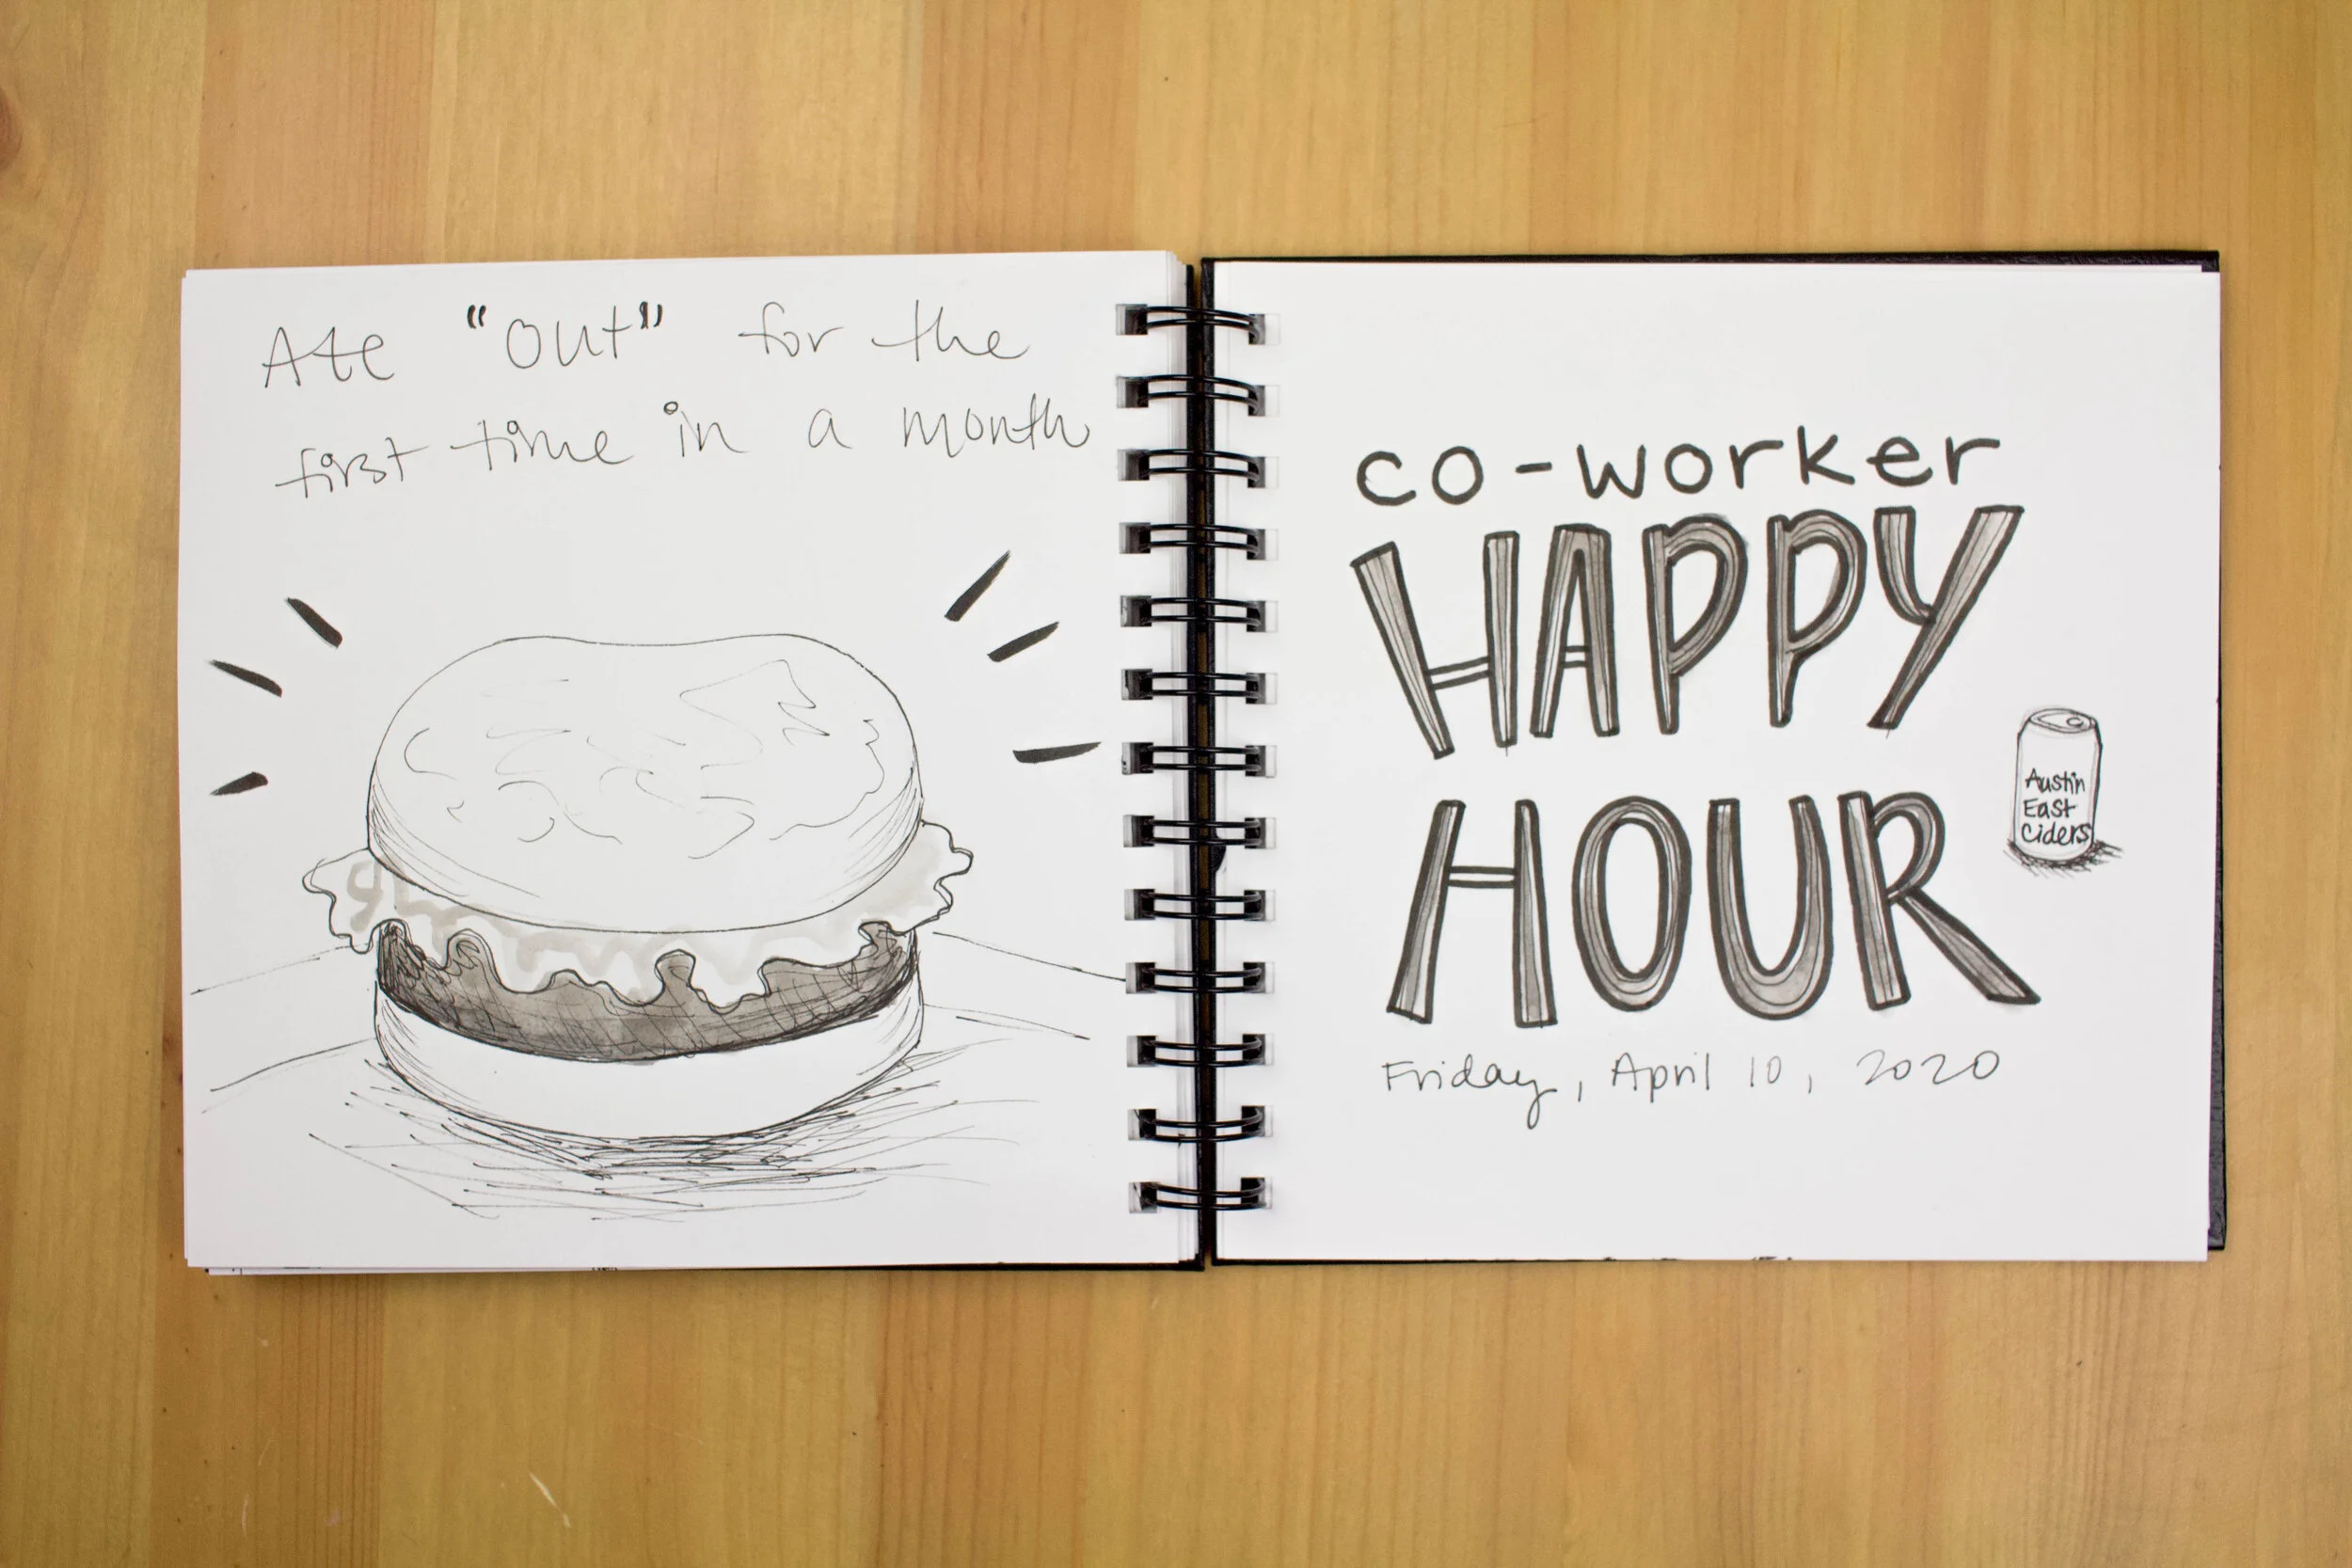 Ate "out" for the
first time in a month
co-worker
HAPPY
HOUR
Austin
East
Ciders
Friday, April 10, 2020